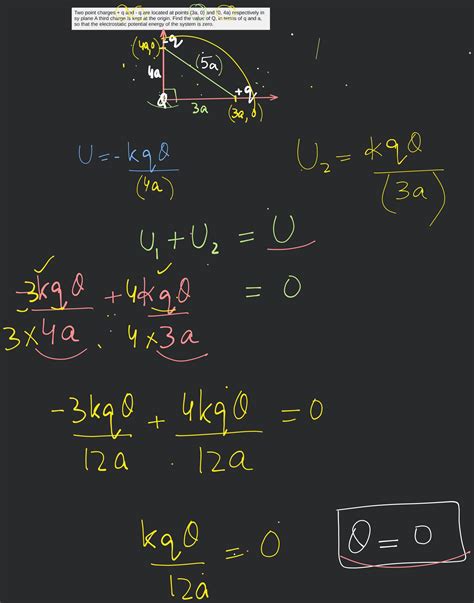 Two point charges + q and - q are located at points (3a, 0) and (0, 4a) respectively in
xy plane A third charge is kept at the origin. Find the value of Q, in terms of q and a,
so that the electrostatic potential energy of the system is zero.
-q
4a
(5a)
+q
Q
3a
(3a, 0)
U = -kqQ/(4a)
U₂ = kqQ/(3a)
U₁ + U₂ = U
-3kqQ/3×4a + 4kqQ/4×3a = 0
-3kqQ/12a + 4kqQ/12a = 0
kqQ/12a = 0
Q = 0